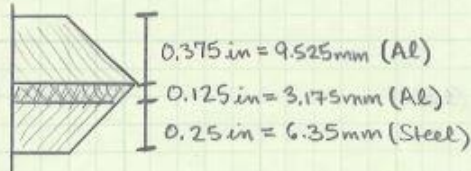 0.375 in = 9.525mm (Al)
0.125 in = 3.175mm (Al)
0.25 in = 6.35mm (Steel)